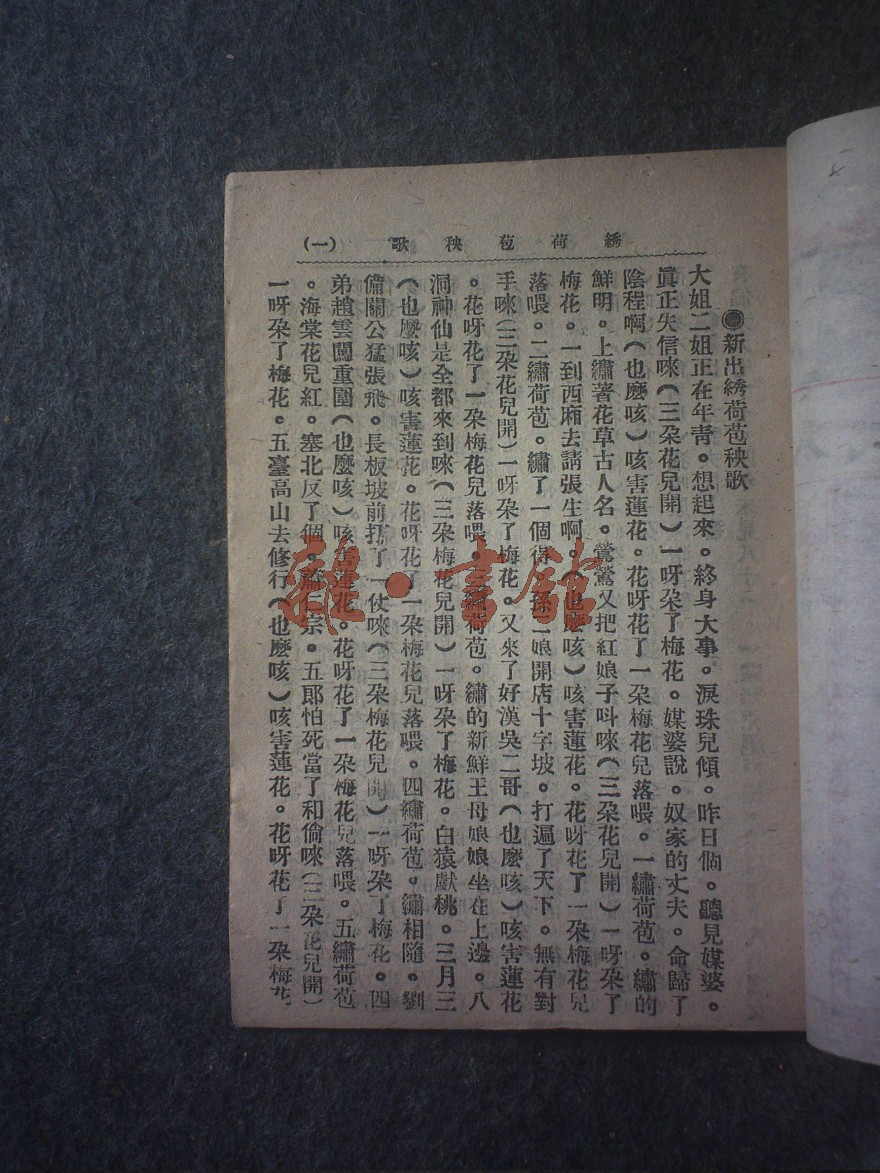 綉荷苞秧歌 (一)
●新出綉荷苞秧歌
大姐二姐正在年靑。想起來。終身大事。淚珠兒傾。昨日個。聽見媒婆。
眞正失信唻(三朶花兒開)一呀朶了梅花。媒婆說。奴家的丈夫。命歸了
陰程啊(也麼咳)咳害蓮花。花呀花了一朶梅花兒落喂。一繡荷苞。繡的
鮮明。上繡著花草古人名。鶯鶯又把紅娘子呌唻(三朶花兒開)一呀朶了
梅花。一到西廂去請張生啊。(也麼咳)咳害蓮花。花呀花了一朶梅花兒
落喂。二繡荷苞。繡了一個得。孫二娘開店十字坡。打遍了天下。無有對
手唻(三朶花兒開)一呀朶了梅花。又來了好漢吳二哥(也麼咳)咳害蓮花
。花呀花了一朶梅花兒落喂。三繡荷苞。繡的新鮮王母娘娘坐在上邊。八
洞神仙是全都來到唻(三朶梅花兒開)一呀朶了梅花。白猿獻桃。三月三
(也麼咳)咳害蓮花。花呀花了一朶梅花兒落喂。四繡荷苞。繡相隨。劉
備關公猛張飛。長板坡前打了一仗唻(三朶梅花兒開)一呀朶了梅花。四
弟趙雲闖重圍(也麼咳)咳害蓮花。花呀花了一朶梅花兒落喂。五繡荷苞
。海棠花兒紅。塞北反了個。蕭仁宗。五郎怕死當了和尙唻(三朶花兒開)
一呀朶了梅花。五臺高山去修行(也麼咳)咳害蓮花。花呀花了一朶梅花
雜·書館